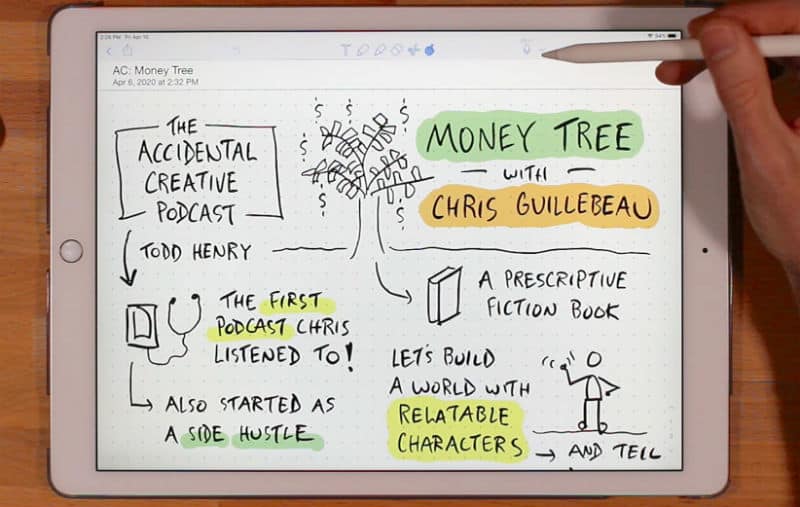 PM Fri Apr
94%
AC: Money Tree
Apr 6, 2020 at 2:32 PM
THE
ACCIDENTAL
CREATIVE
PODCAST
TODD HENRY
$ $ $
$ $
$ $
MONEY TREE
WITH
CHRIS GUILLEBEAU
A PRESCRIPTIVE
FICTION BOOK
THE FIRST
PODCAST CHRIS
LISTENED TO!
ALSO STARTED AS
A SIDE HUSTLE
LET'S BUILD
A WORLD WITH
RELATABLE
CHARACTERS
→ AND TELL